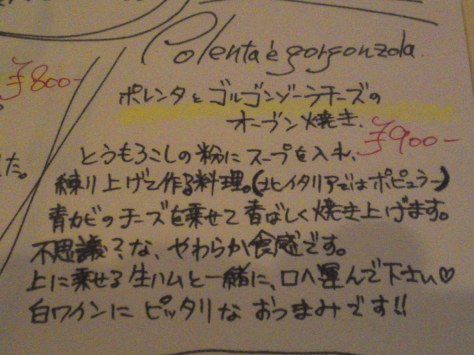 Polenta e gorgonzola.
¥800-
ポレンタとゴルゴンゾーラチーズの
オーブン焼き.
¥900-
とうもろこしの粉にスープを入れ、
練り上げて作る料理。(北イタリアではポピュラー)
た。
青カビのチーズを乗せて香ばしく焼き上げます。
不思議?な、やわらか食感です。
上に乗せる生ハムと一緒に、口へ運んで下さい♡
白ワインにピッタリなおつまみです!!